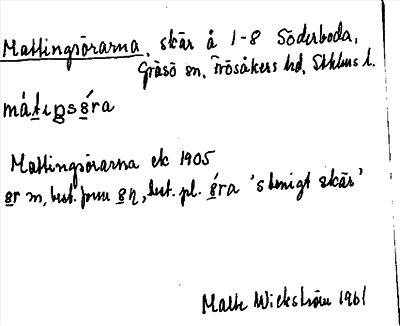 Mattingsörarna, skär å 1-8 Söderboda,
Gräsö sn, Frösåkers hd, Sthlms l.
Mattingsörarna ek 1905
ör m, best. form, best. pl. 'stenigt skär'
Malte Wickström 1961